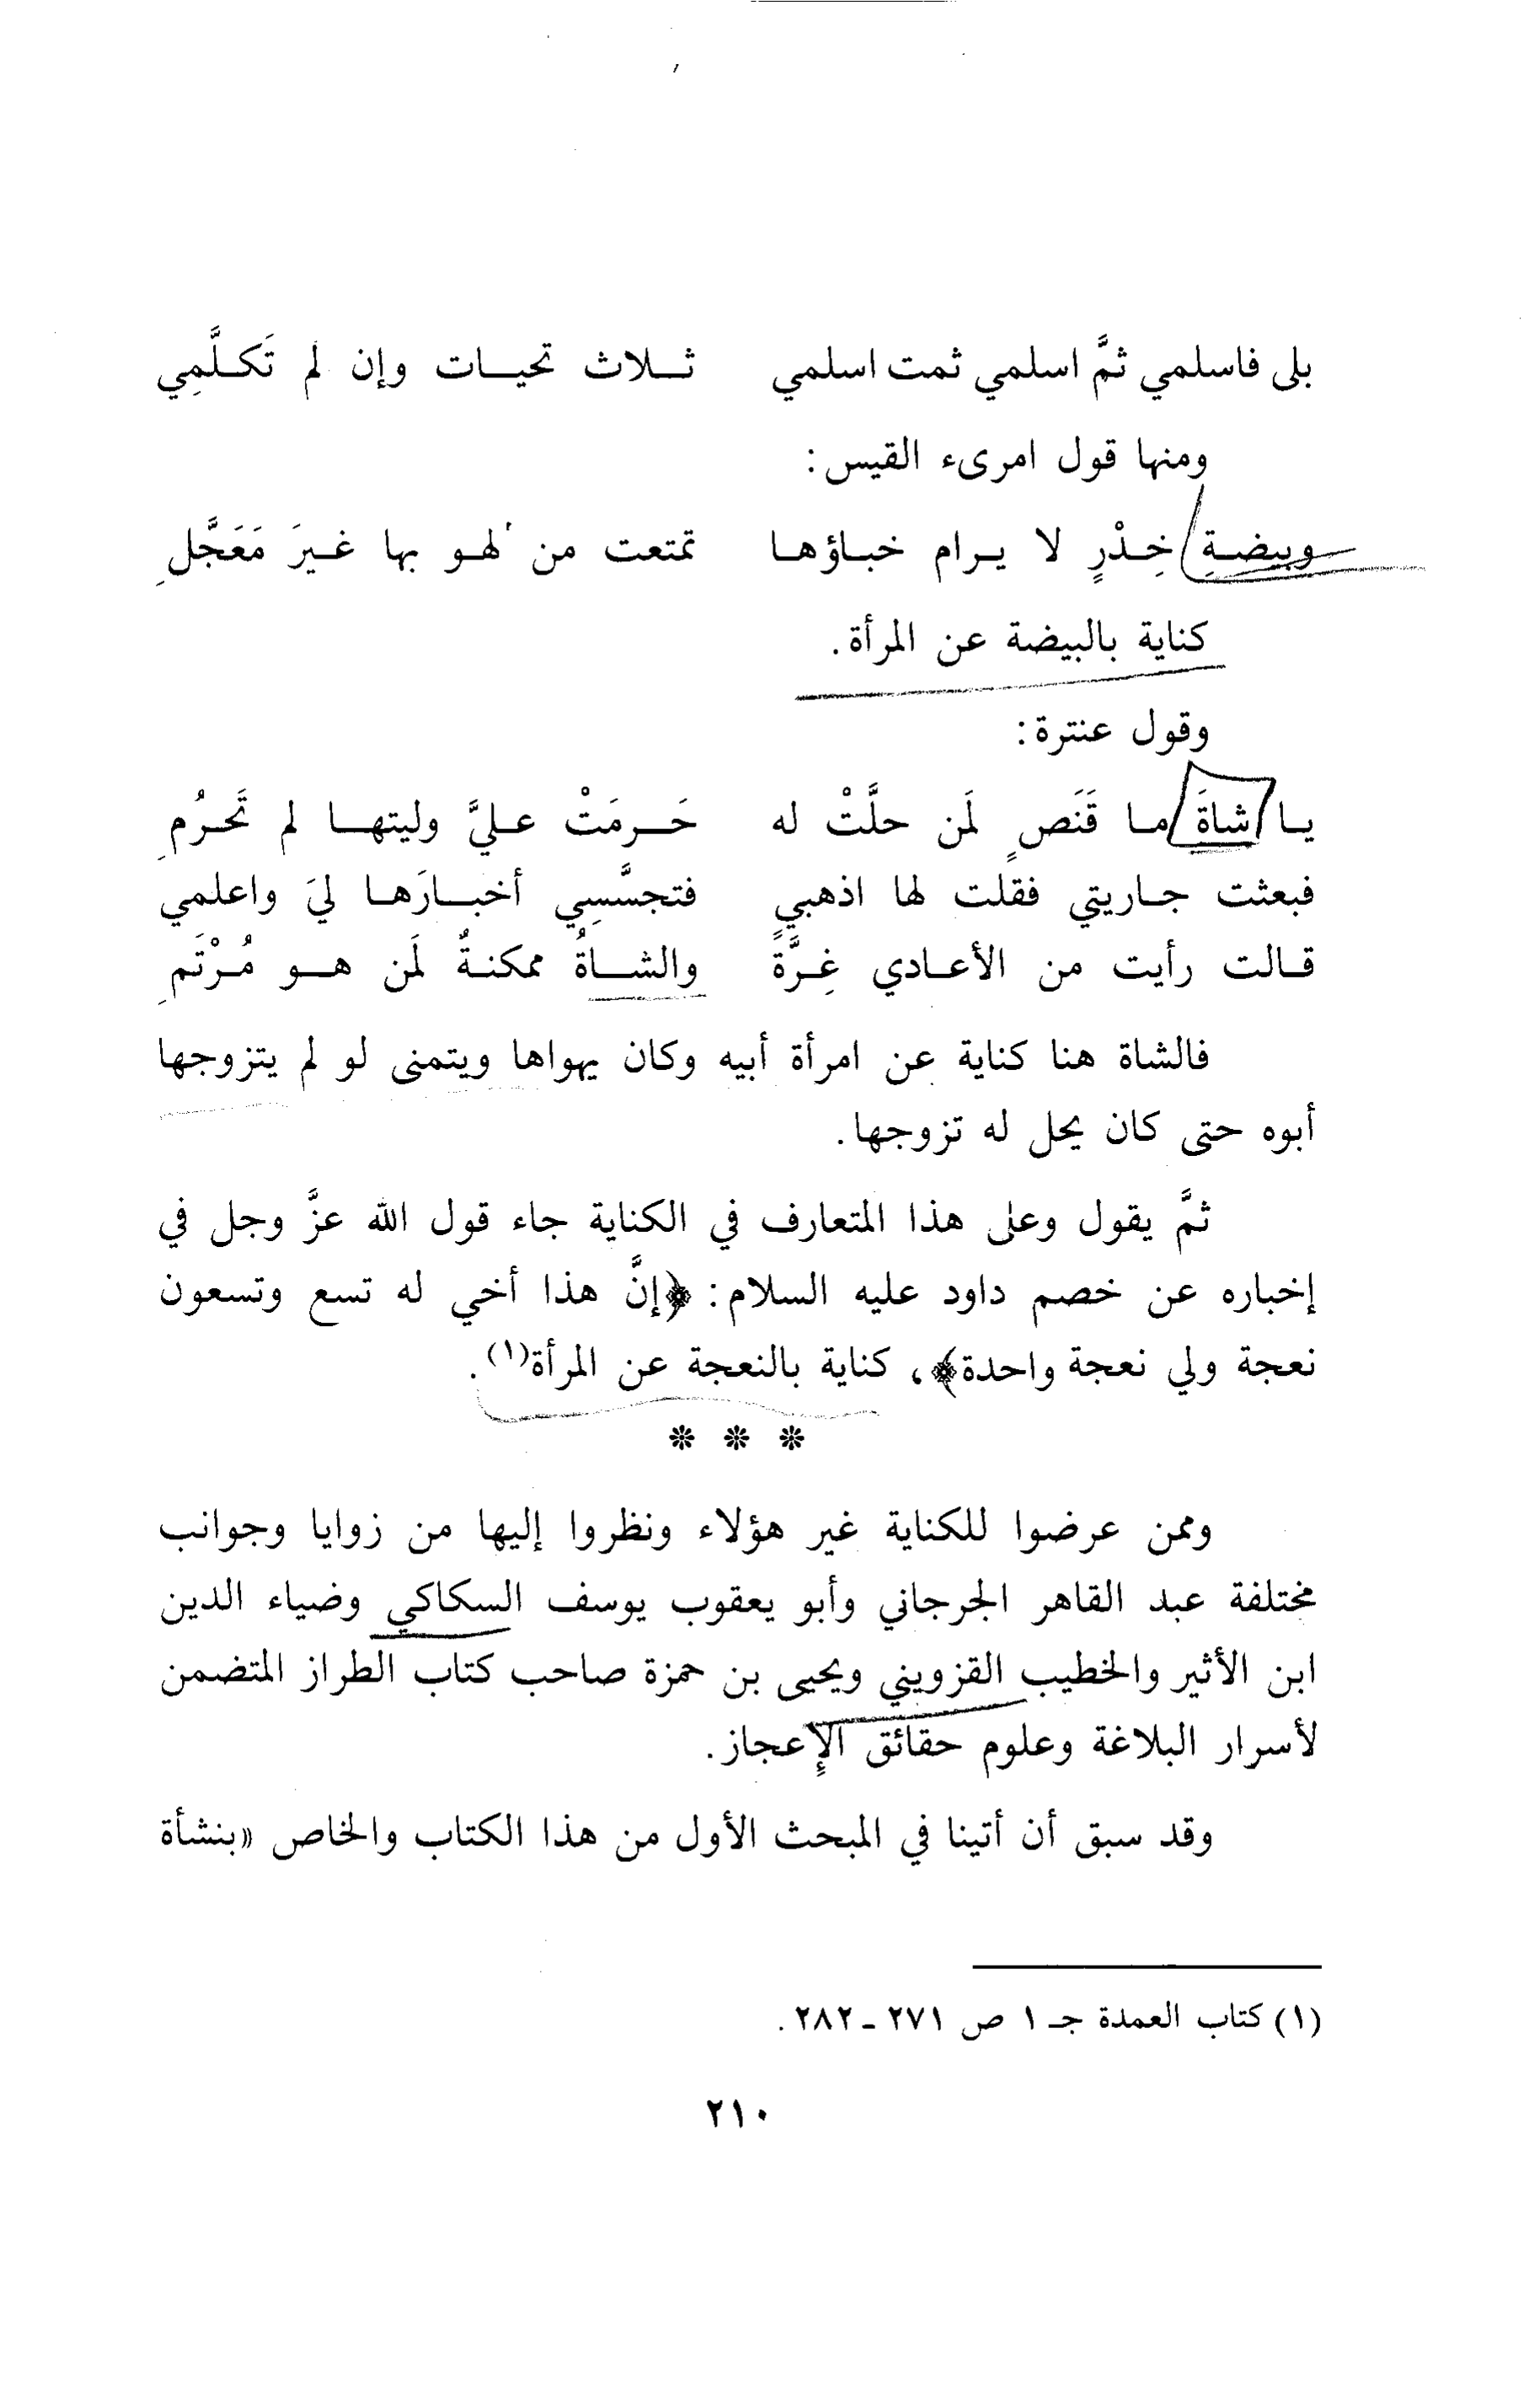 بلى فاسلمي ثمَّ اسلمي ثمت اسلمي ثــلاث تحيــات وإن لم تَكـلَّمِي
ومنها قول امرىء القيس:
وبيضـةِ خِـدْرٍ لا يـرام خبـاؤهـا تمتعت من لهـو بها غـيرَ مَعَجَّلِ
كناية بالبيضة عن المرأة.
وقول عنترة:
يـا شاةَ مـا قَنَصٍ لَمن حلَّتْ له حَــرمَتْ عـليَّ وليتهــا لم تَحـرُمِ
فبعثت جـاريتي فقلت لها اذهبي فتجسَّسِي أخبــارَهـا ليَ واعلمي
قـالت رأيت من الأعـادي غِـرَّةً والشــاةُ ممكنـةٌ لَمن هــو مُـرْتَمِ
فالشاة هنا كناية عن امرأة أبيه وكان يهواها ويتمنى لو لم يتزوجها
أبوه حتى كان يحل له تزوجها.
ثمَّ يقول وعلى هذا المتعارف في الكناية جاء قول الله عزَّ وجل في
إخباره عن خصم داود عليه السلام: ﴿إنَّ هذا أخي له تسع وتسعون
نعجة ولي نعجة واحدة﴾، كناية بالنعجة عن المرأة(١).
* * *
وممن عرضوا للكناية غير هؤلاء ونظروا إليها من زوايا وجوانب
مختلفة عبد القاهر الجرجاني وأبو يعقوب يوسف السكاكي وضياء الدين
ابن الأثير والخطيب القزويني ويحيى بن حمزة صاحب كتاب الطراز المتضمن
لأسرار البلاغة وعلوم حقائق الإعجاز.
وقد سبق أن أتينا في المبحث الأول من هذا الكتاب والخاص «بنشأة
(١) كتاب العمدة جـ ١ ص ٢٧١ - ٢٨٢.
٢١٠